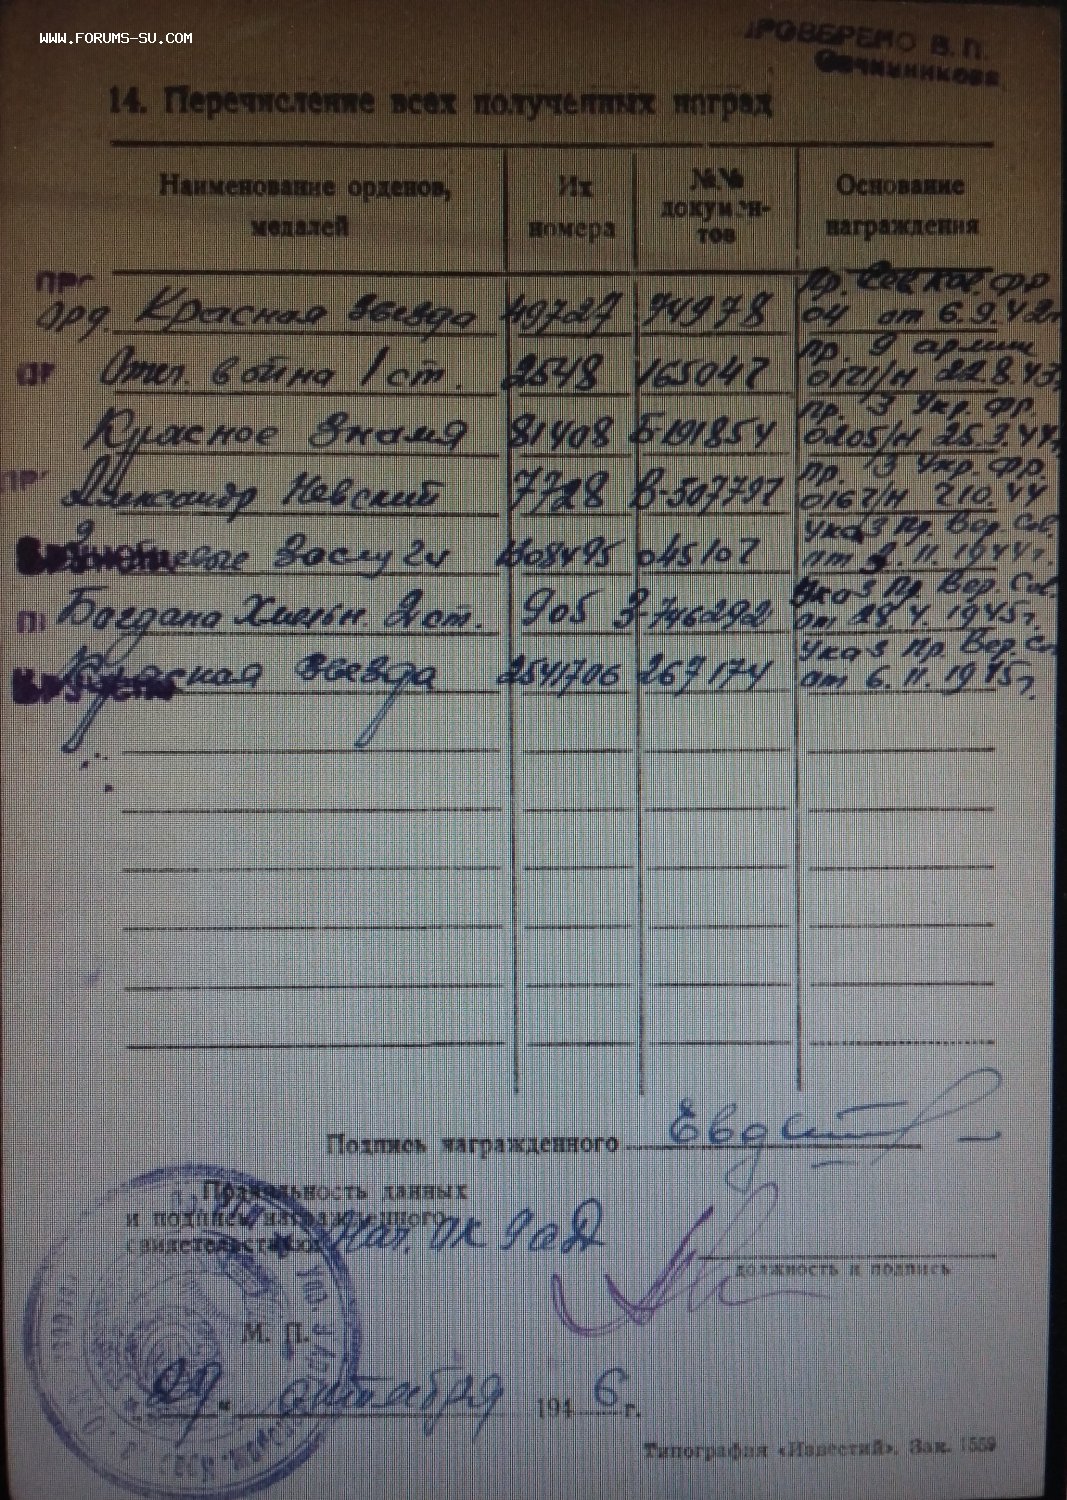 WWW.FORUMS-SU.COM
ПРОВЕРЕНО В. П.
14. Перечисление всех полученных наград
Наименование орденов, медалей
Их номера
№№ докумен-тов
Основание награждения
орд. Красная звезда 49727 74978 Пр. фр 04 от 6.9.42г
Отеч. война 1 ст. 2548 165047 пр. 9 армии 0121/н 22.8.43.
Красное Знамя 81408 Б-191854 пр. 3 Укр. фр. 0205/н 25.3.44.
Александр Невский 7728 В-507797 пр. 3 Укр. фр. 0167/н 2.10.44
Боевые Заслуги 1108495 045107 Указ Пр. Вер. Сов. от 3.11.1944г.
Богдана Хмельн. 2 ст. 905 З-746292 Указ Пр. Вер. Сов. от 28.4.1945г.
Красная звезда 2541706 267174 Указ Пр. Вер. Со. от 6.11.1945г.
Подпись награжденного
Правильность данных
и подписи награжденного
свидетельствую Нач. ОК 9 ад
должность и подпись
М. П.
"29" октября 1946 г.
Типография «Известий». Зак. 1559